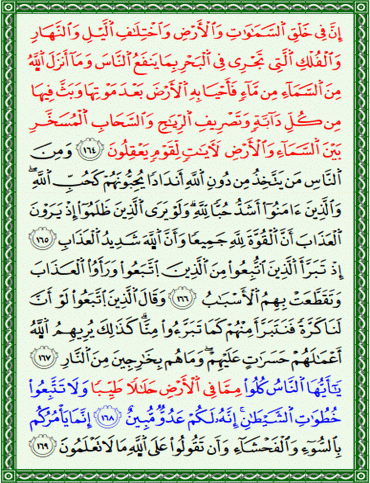 إِنَّ فِي خَلْقِ ٱلسَّمَٰوَٰتِ وَٱلْأَرْضِ وَٱخْتِلَٰفِ ٱلَّيْلِ وَٱلنَّهَارِ
وَٱلْفُلْكِ ٱلَّتِي تَجْرِي فِي ٱلْبَحْرِ بِمَا يَنفَعُ ٱلنَّاسَ وَمَآ أَنزَلَ ٱللَّهُ
مِنَ ٱلسَّمَآءِ مِن مَّآءٍ فَأَحْيَا بِهِ ٱلْأَرْضَ بَعْدَ مَوْتِهَا وَبَثَّ فِيهَا
مِن كُلِّ دَآبَّةٍ وَتَصْرِيفِ ٱلرِّيَٰحِ وَٱلسَّحَابِ ٱلْمُسَخَّرِ
بَيْنَ ٱلسَّمَآءِ وَٱلْأَرْضِ لَءَايَٰتٍ لِّقَوْمٍ يَعْقِلُونَ ١٦٤ وَمِنَ
ٱلنَّاسِ مَن يَتَّخِذُ مِن دُونِ ٱللَّهِ أَندَادًا يُحِبُّونَهُمْ كَحُبِّ ٱللَّهِۖ
وَٱلَّذِينَ ءَامَنُوٓا۟ أَشَدُّ حُبًّا لِّلَّهِۗ وَلَوْ يَرَى ٱلَّذِينَ ظَلَمُوٓا۟ إِذْ يَرَوْنَ
ٱلْعَذَابَ أَنَّ ٱلْقُوَّةَ لِلَّهِ جَمِيعًا وَأَنَّ ٱللَّهَ شَدِيدُ ٱلْعَذَابِ ١٦٥
إِذْ تَبَرَّأَ ٱلَّذِينَ ٱتُّبِعُوا۟ مِنَ ٱلَّذِينَ ٱتَّبَعُوا۟ وَرَأَوُا۟ ٱلْعَذَابَ
وَتَقَطَّعَتْ بِهِمُ ٱلْأَسْبَابُ ١٦٦ وَقَالَ ٱلَّذِينَ ٱتَّبَعُوا۟ لَوْ أَنَّ
لَنَا كَرَّةً فَنَتَبَرَّأَ مِنْهُمْ كَمَا تَبَرَّءُوا۟ مِنَّاۗ كَذَٰلِكَ يُرِيهِمُ ٱللَّهُ
أَعْمَٰلَهُمْ حَسَرَٰتٍ عَلَيْهِمْۖ وَمَا هُم بِخَٰرِجِينَ مِنَ ٱلنَّارِ ١٦٧
يَٰٓأَيُّهَا ٱلنَّاسُ كُلُوا۟ مِمَّا فِي ٱلْأَرْضِ حَلَٰلًا طَيِّبًا وَلَا تَتَّبِعُوا۟
خُطُوَٰتِ ٱلشَّيْطَٰنِۚ إِنَّهُۥ لَكُمْ عَدُوٌّ مُّبِينٌ ١٦٨ إِنَّمَا يَأْمُرُكُم
بِٱلسُّوٓءِ وَٱلْفَحْشَآءِ وَأَن تَقُولُوا۟ عَلَى ٱللَّهِ مَا لَا تَعْلَمُونَ ١٦٩